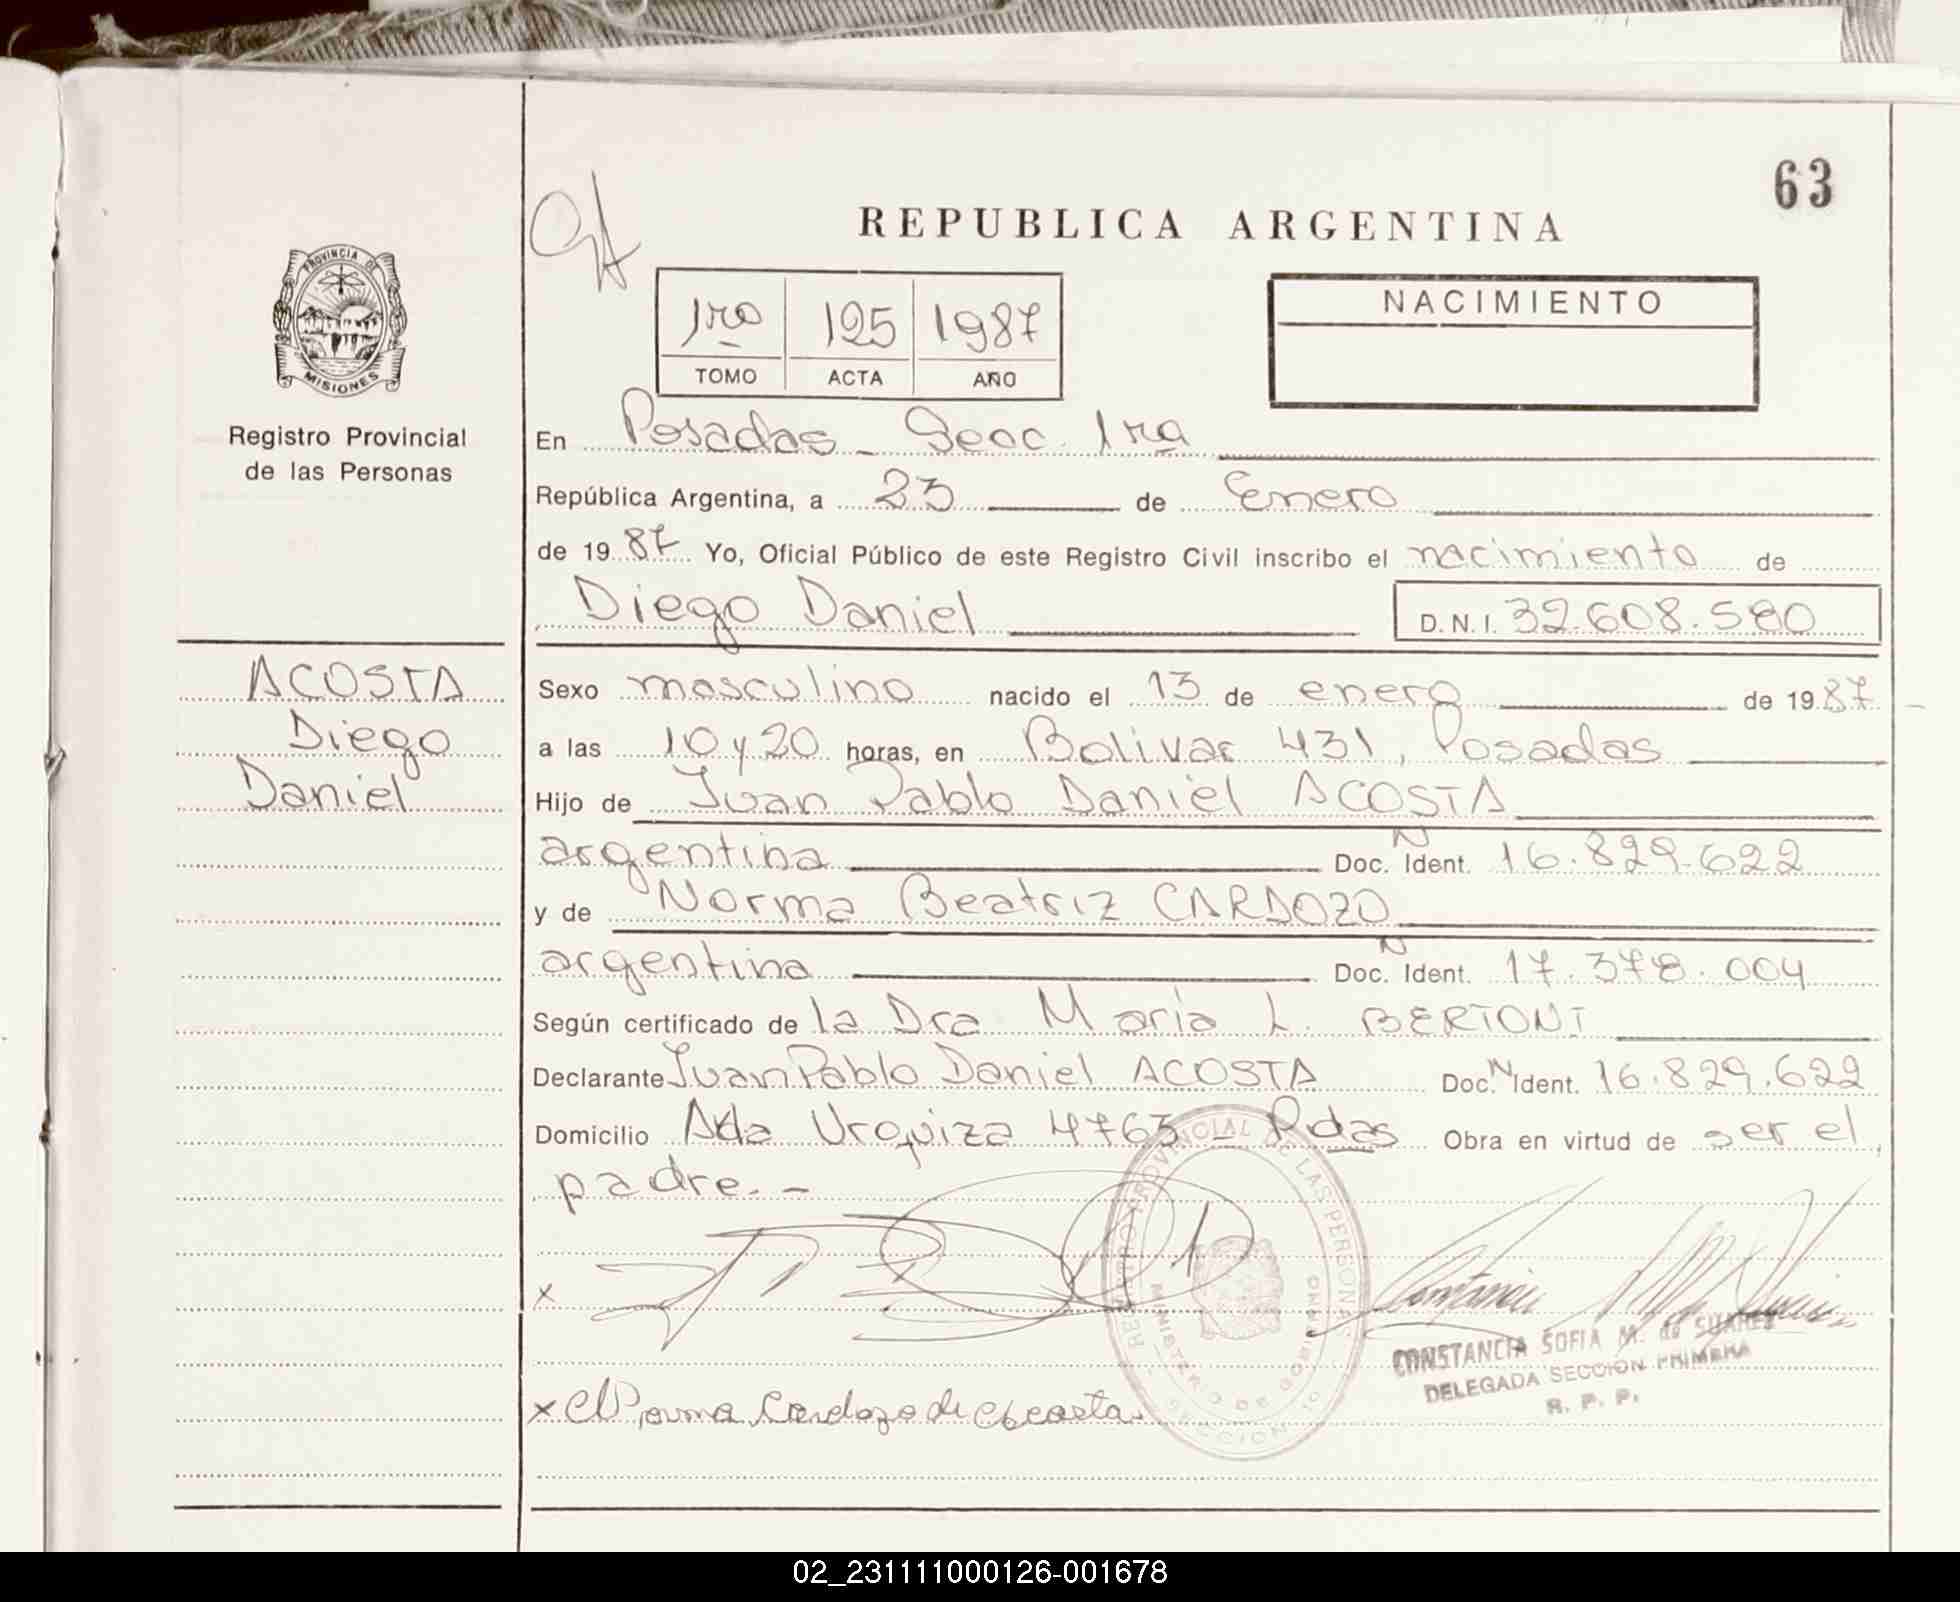 63
REPUBLICA ARGENTINA
PROVINCIA DE
MISIONES
Registro Provincial
de las Personas
1ro 125 1987
TOMO ACTA AÑO
NACIMIENTO
En Posadas - Secc. 1ra
República Argentina, a 23 de Enero
de 1987 Yo, Oficial Público de este Registro Civil inscribo el nacimiento de
Diego Daniel D.N.I. 32.608.580
ACOSTA
Diego
Daniel
Sexo masculino nacido el 13 de enero de 1987
a las 10 y 20 horas, en Bolivar 431, Posadas
Hijo de Juan Pablo Daniel ACOSTA
argentina Doc. N Ident. 16.829.622
y de Norma Beatriz CARDOZO
argentina Doc. N Ident. 17.378.004
Según certificado de la Dra Maria L. BERTONI
Declarante Juan Pablo Daniel ACOSTA Doc. N Ident. 16.829.622
Domicilio Avda Urquiza 4763 - Pdas Obra en virtud de ser el
padre. -
x
REGISTRO PROVINCIAL DE LAS PERSONAS
MINISTERIO DE GOBIERNO
CONSTANCIA SOFIA M. de SUAREZ
DELEGADA SECCION PRIMERA
R. P. P.
x Norma Cardozo de Acosta
02_231111000126-001678